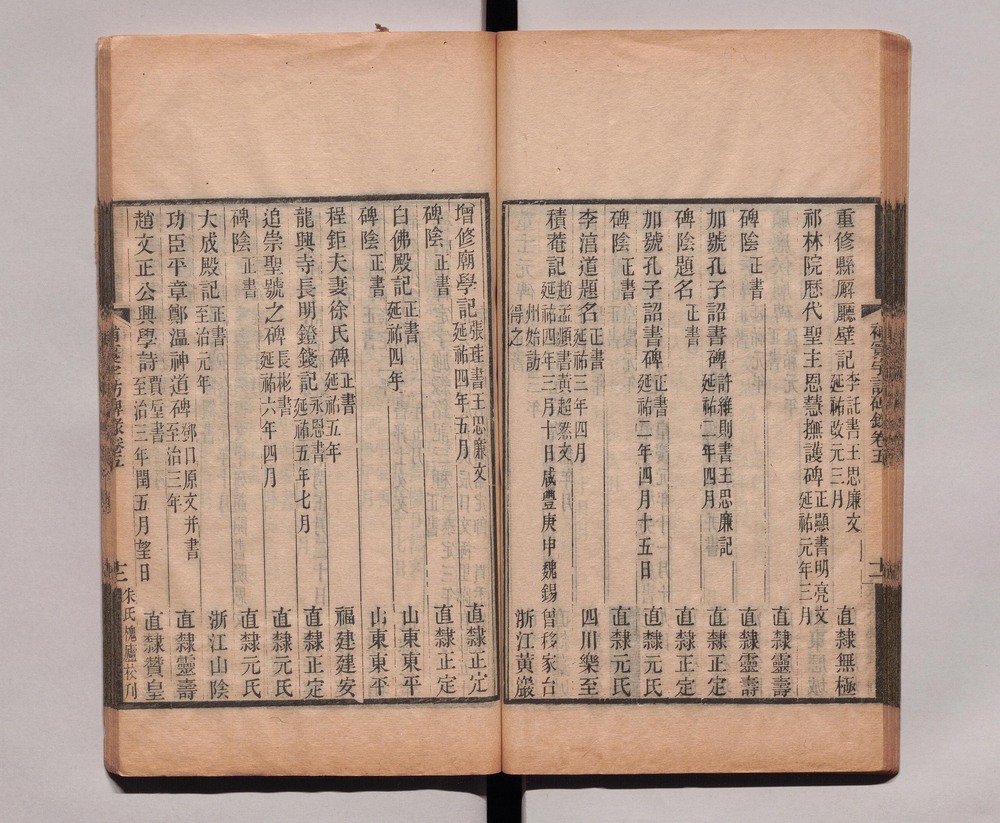 重修縣廨廳壁記 李託書王思廉文 延祐改元三月 直隸無極
祁林院歴代聖主恩慧撫護碑 正顯書明亮文 延祐元年三月
碑陰 正書 直隸靈壽
加號孔子詔書碑 許維則書王思廉記 延祐二年四月 直隸正定
碑陰題名 正書 直隸正定
加號孔子詔書碑 正書 延祐二年四月十五日 直隸元氏
碑陰 正書 直隸元氏
李涫道題名 正書 延祐三年四月 四川樂至
積菴記 趙孟頫書黃超然文 延祐四年三月十日咸豐庚申魏錫曾移家台州始訪得之 浙江黃巖
增修廟學記 張珪書王思廉文 延祐四年五月 直隸正定
碑陰 正書 直隸正定
白佛殿記 正書 延祐四年 山東東平
碑陰 正書 山東東平
程鉅夫妻徐氏碑 正書 延祐五年 福建建安
龍興寺長明鐙錢記 永恩書 延祐五年七月 直隸正定
追崇聖號之碑 長彬書 延祐六年四月 直隸元氏
碑陰 正書 直隸元氏
大成殿記 正書 至治元年 浙江山陰
功臣平章鄭溫神道碑 原文并書 至治三年 直隸靈壽
趙文正公興學詩 賈垕書 至治三年閏五月望日 直隸贊皇
補寰宇訪碑錄卷五
十二
朱氏槐廬校刊